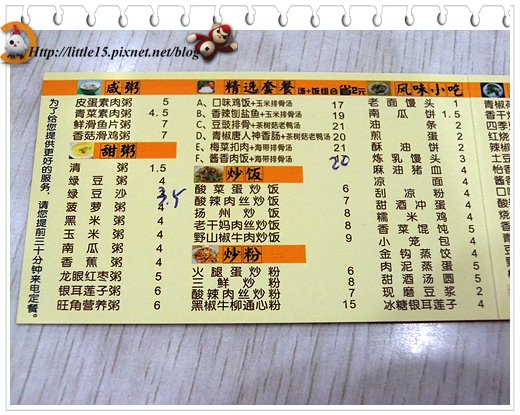 Http://little15.pixnet.net/blog
为了给您提供更好的服务，请您提前三十分钟来电定餐。
咸粥
皮蛋素肉粥 5
青菜素肉粥 4.5 7
鲜滑鱼片粥 7
香菇滑鸡粥 7
甜粥
清粥 1.5
绿豆粥 4
绿豆沙 3.5
菠萝粥 4
黑米粥 4
玉米粥 4
南瓜粥 4
香蕉粥 4
龙眼红枣粥 5
银耳莲子粥 6
旺角营养粥 6
精选套餐 汤+饭组合省2元
A、口味鸡饭+玉米排骨汤 17
B、香辣刨盐鱼+玉米排骨汤 19
C、豆豉排骨+茶树菇老鸭汤 21
D、青椒唐人神香肠+茶树菇老鸭汤 20
E、梅菜扣肉+海带排骨汤 21
F、酱香肉饭+海带排骨汤 20
炒饭
酸菜蛋炒饭 6
酸辣肉丝炒饭 7
扬州炒饭 8
老干妈肉丝炒饭 8
野山椒牛肉炒饭 9
炒粉
火腿蛋炒粉 6
三鲜炒粉 8
酸辣肉丝炒粉 7
黑椒牛柳通心粉 15
风味小吃
老面馒头 1
南瓜饼 1.5
油条 2
煎蛋 2
酥油饼 2
炼乳馒头 3
麻油猪血 4
凉面 4
刮凉粉 4
甜酒冲蛋 4
糯米鸡 4
香菜馄饨 5
小笼包 4
金钩蒸饺 4
肉泥蒸蛋 5
甜酒汤圆 5
现磨豆浆 2
冰糖银耳莲子 4